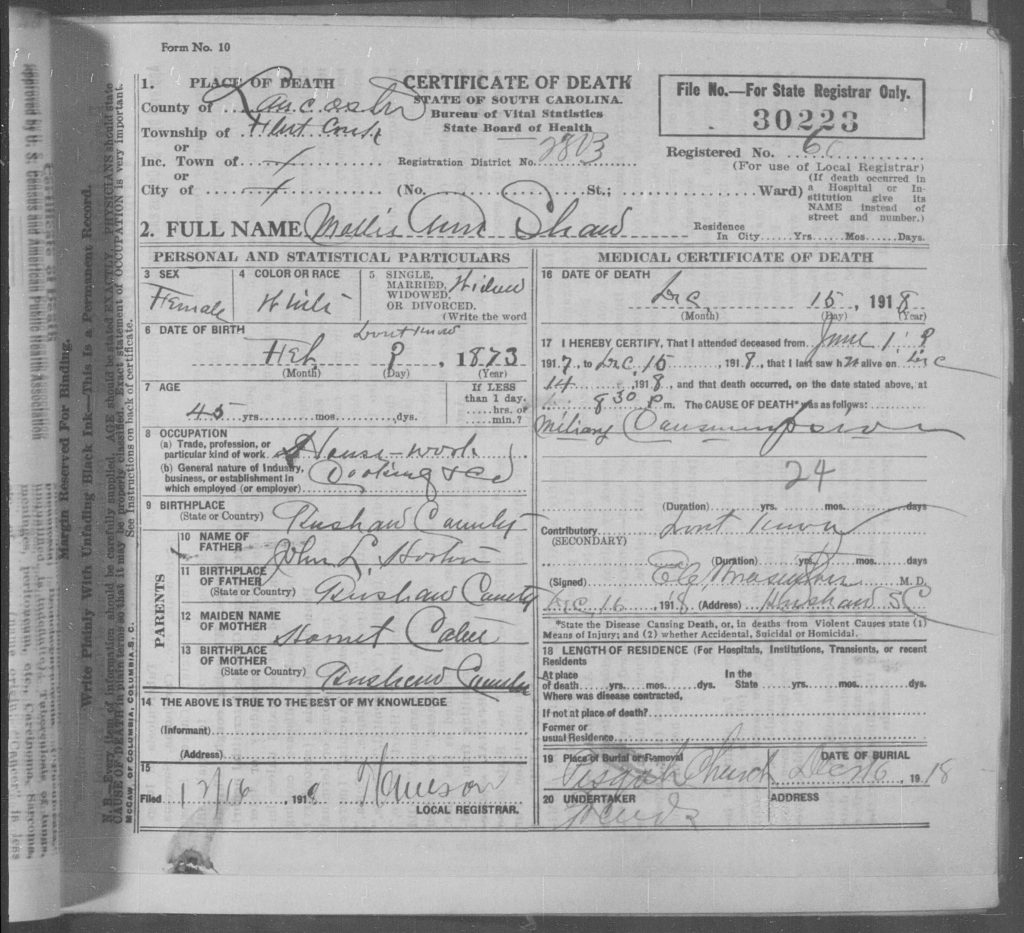 Form No. 10
1. PLACE OF DEATH
County of Lancaster
Township of Flat Creek
or
Inc. Town of
or
City of
CERTIFICATE OF DEATH
STATE OF SOUTH CAROLINA.
Bureau of Vital Statistics
State Board of Health
Registration District No. 2803
(No. St.; Ward)
File No.—For State Registrar Only.
30223
Registered No.
(For use of Local Registrar)
(If death occurred in
a Hospital or In-
stitution give its
NAME instead of
street and number.)
2. FULL NAME Mollie Ann Shaw
Residence
In City Yrs Mos Days.
PERSONAL AND STATISTICAL PARTICULARS
3 SEX
Female
4 COLOR OR RACE
White
5 SINGLE,
MARRIED,
WIDOWED,
OR DIVORCED.
(Write the word
Widow
6 DATE OF BIRTH
Dont Know
Feb , 1873
(Month) (Day) (Year)
7 AGE
45 yrs. mos. dys.
If LESS
than 1 day.
hrs. or
min.?
8 OCCUPATION
(a) Trade, profession, or
particular kind of work House-work
(b) General nature of Industry,
business, or establishment in
which employed (or employer) Cooking
9 BIRTHPLACE
(State or Country) Kershaw County
PARENTS
10 NAME OF
FATHER John L. Horton
11 BIRTHPLACE
OF FATHER
(State or Country) Kershaw County
12 MAIDEN NAME
OF MOTHER
13 BIRTHPLACE
OF MOTHER
(State or Country) Kershaw County
14 THE ABOVE IS TRUE TO THE BEST OF MY KNOWLEDGE
(Informant)
(Address)
15
Filed 12/16 191
LOCAL REGISTRAR.
MEDICAL CERTIFICATE OF DEATH
16 DATE OF DEATH
Dec 15, 1918
(Month) (Day) (Year)
17 I HEREBY CERTIFY, That I attended deceased from June 1
1917, to Dec, 15, 1918, that I last saw her alive on Dec
14, 1918, and that death occurred, on the date stated above, at
8 30 P m. The CAUSE OF DEATH* was as follows:
Miliary Consumption
24
(Duration) yrs. mos. days
Contributory Dont Know
(SECONDARY)
(Duration) yrs. mos. days
(Signed) M. D.
Dec, 16, 1918 (Address) Kershaw SC
*State the Disease Causing Death, or, in deaths from Violent Causes state (1)
Means of Injury; and (2) whether Accidental, Suicidal or Homicidal.
18 LENGTH OF RESIDENCE (For Hospitals, Institutions, Transients, or recent
Residents
At place
of death yrs. mos. dys.
In the
State yrs. mos. dys.
Where was disease contracted,
If not at place of death?
Former or
usual Residence
19 Place of Burial or Removal
Pisgah Church
DATE OF BURIAL
Dec 16, 1918
20 UNDERTAKER
ADDRESS
Margin Reserved For Binding.
Write Plainly With Unfading Black Ink—This Is a Permanent Record.
N. B.—Every item of information should be carefully supplied. AGE should be stated EXACTLY. PHYSICIANS should state
CAUSE OF DEATH in plain terms so that it may be properly classified. Exact statement of OCCUPATION is very important.
See Instructions on back of certificate.
McCAW, OF COLUMBIA, COLUMBIA S. C.